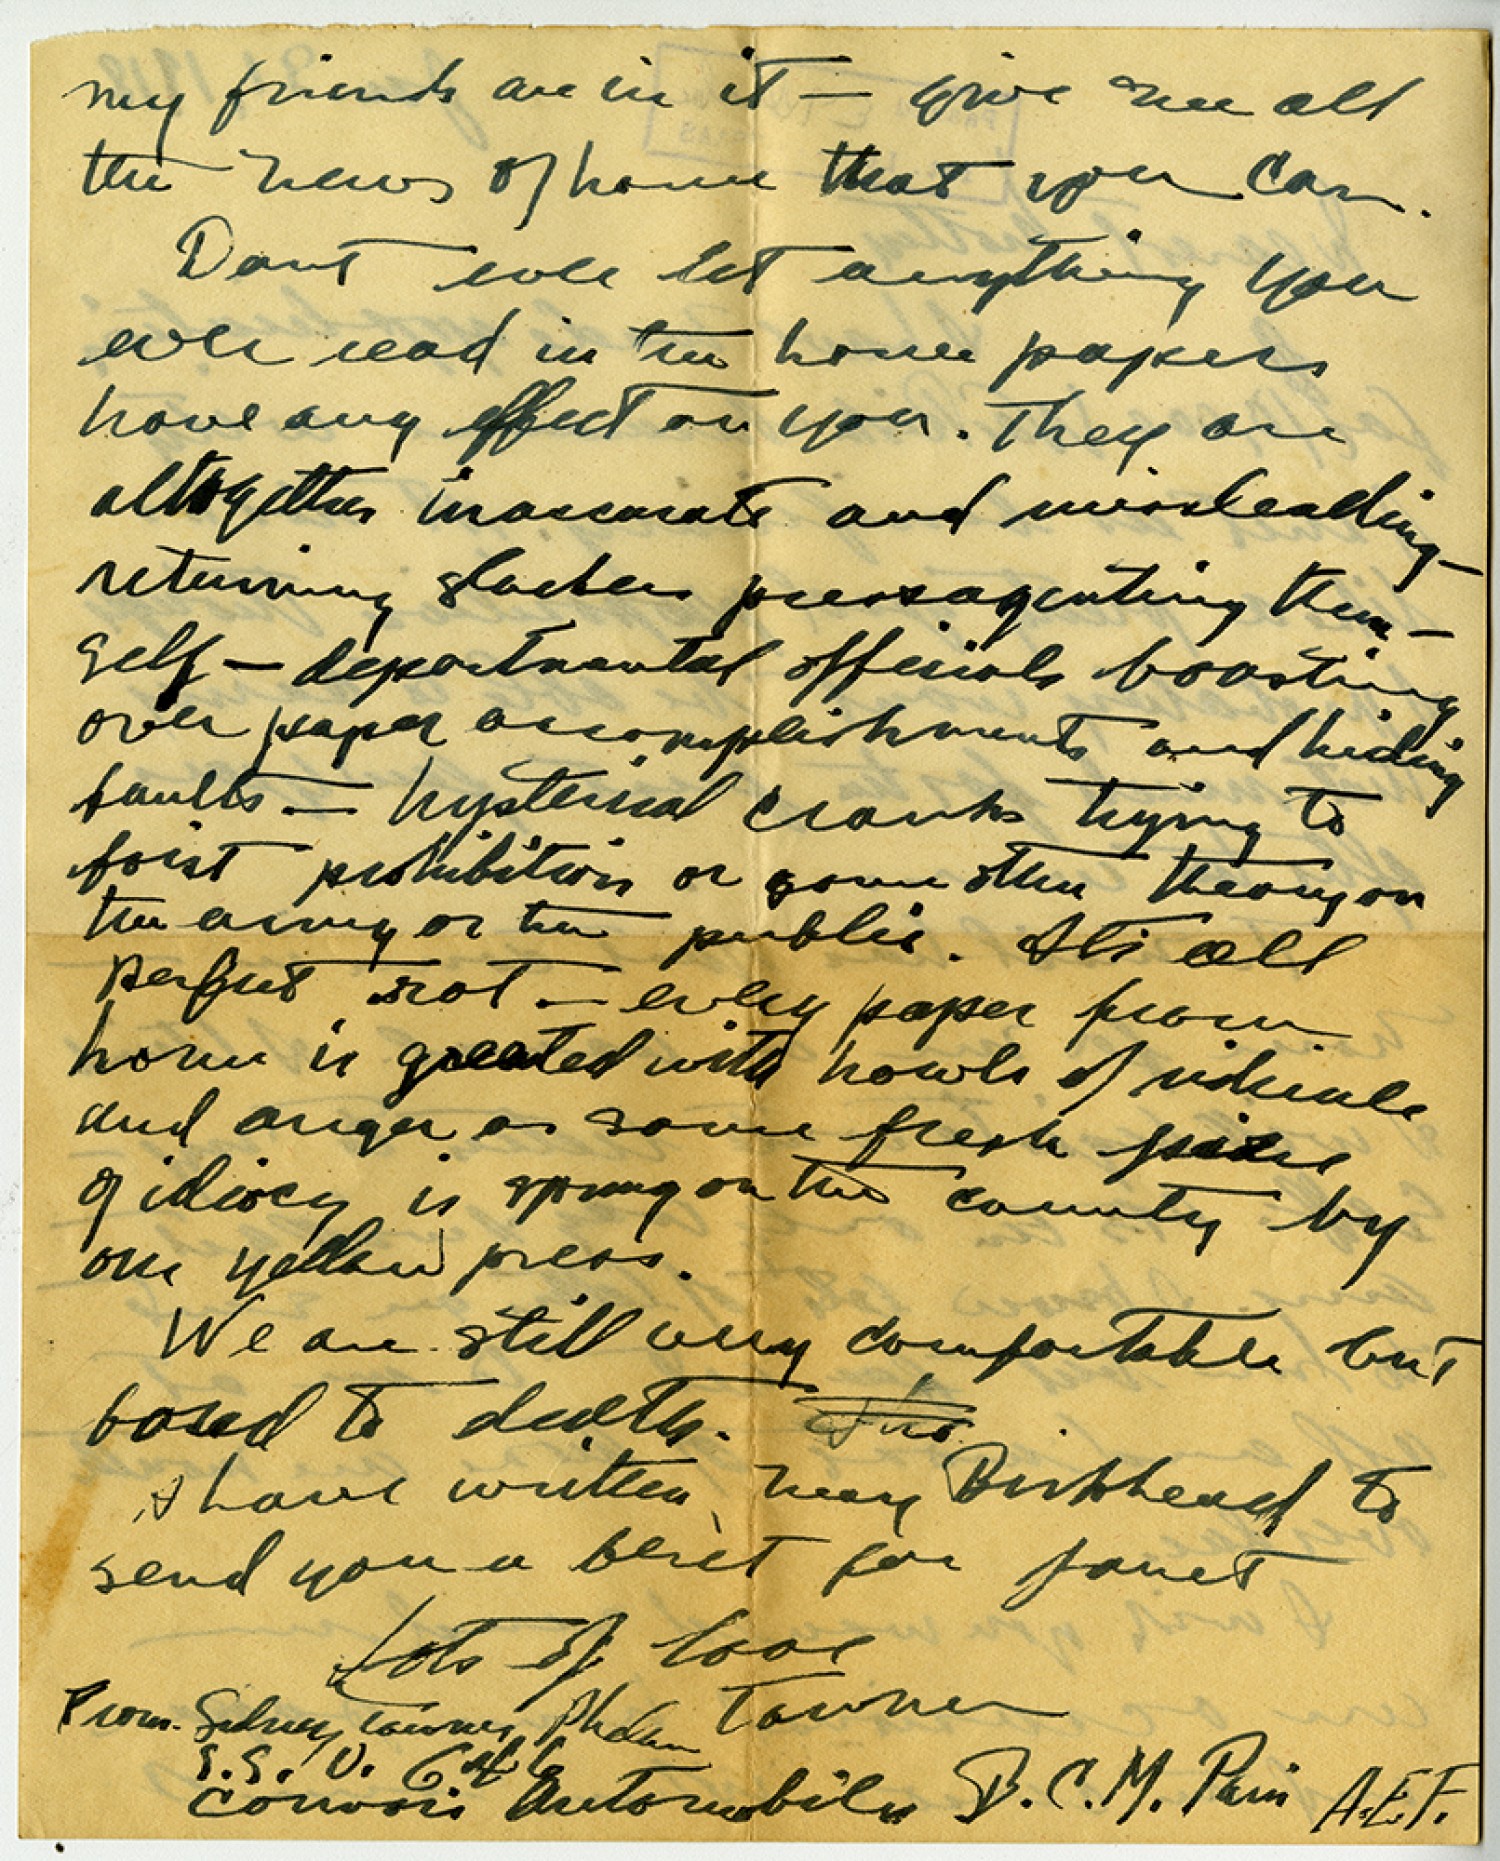 my friends are in it — give me all
the news of home that you can.
Dont ever let anything you
ever read in the home papers
have any effect on you. They are
altogether inaccurate and misleading —
returning slackers pressagenting them —
self — departmental officials boasting
over paper accomplishments and hiding
faults — hysterical cranks trying to
foist prohibition or some other theory on
the army or the public. Its all
perfect rot — every paper from
home is greeted with howls of ridicule
and anger as some fresh piece
of idiocy is sprung on the country by
our yellow press.
We are still very comfortable but
bored to death.
I have written Birkhead to
send you a beret for Janet
Lots of love
Towner
From Sidney Towner Phelan
S.S.U. 646
Convois Automobiles B.C.M. Paris A.E.F.